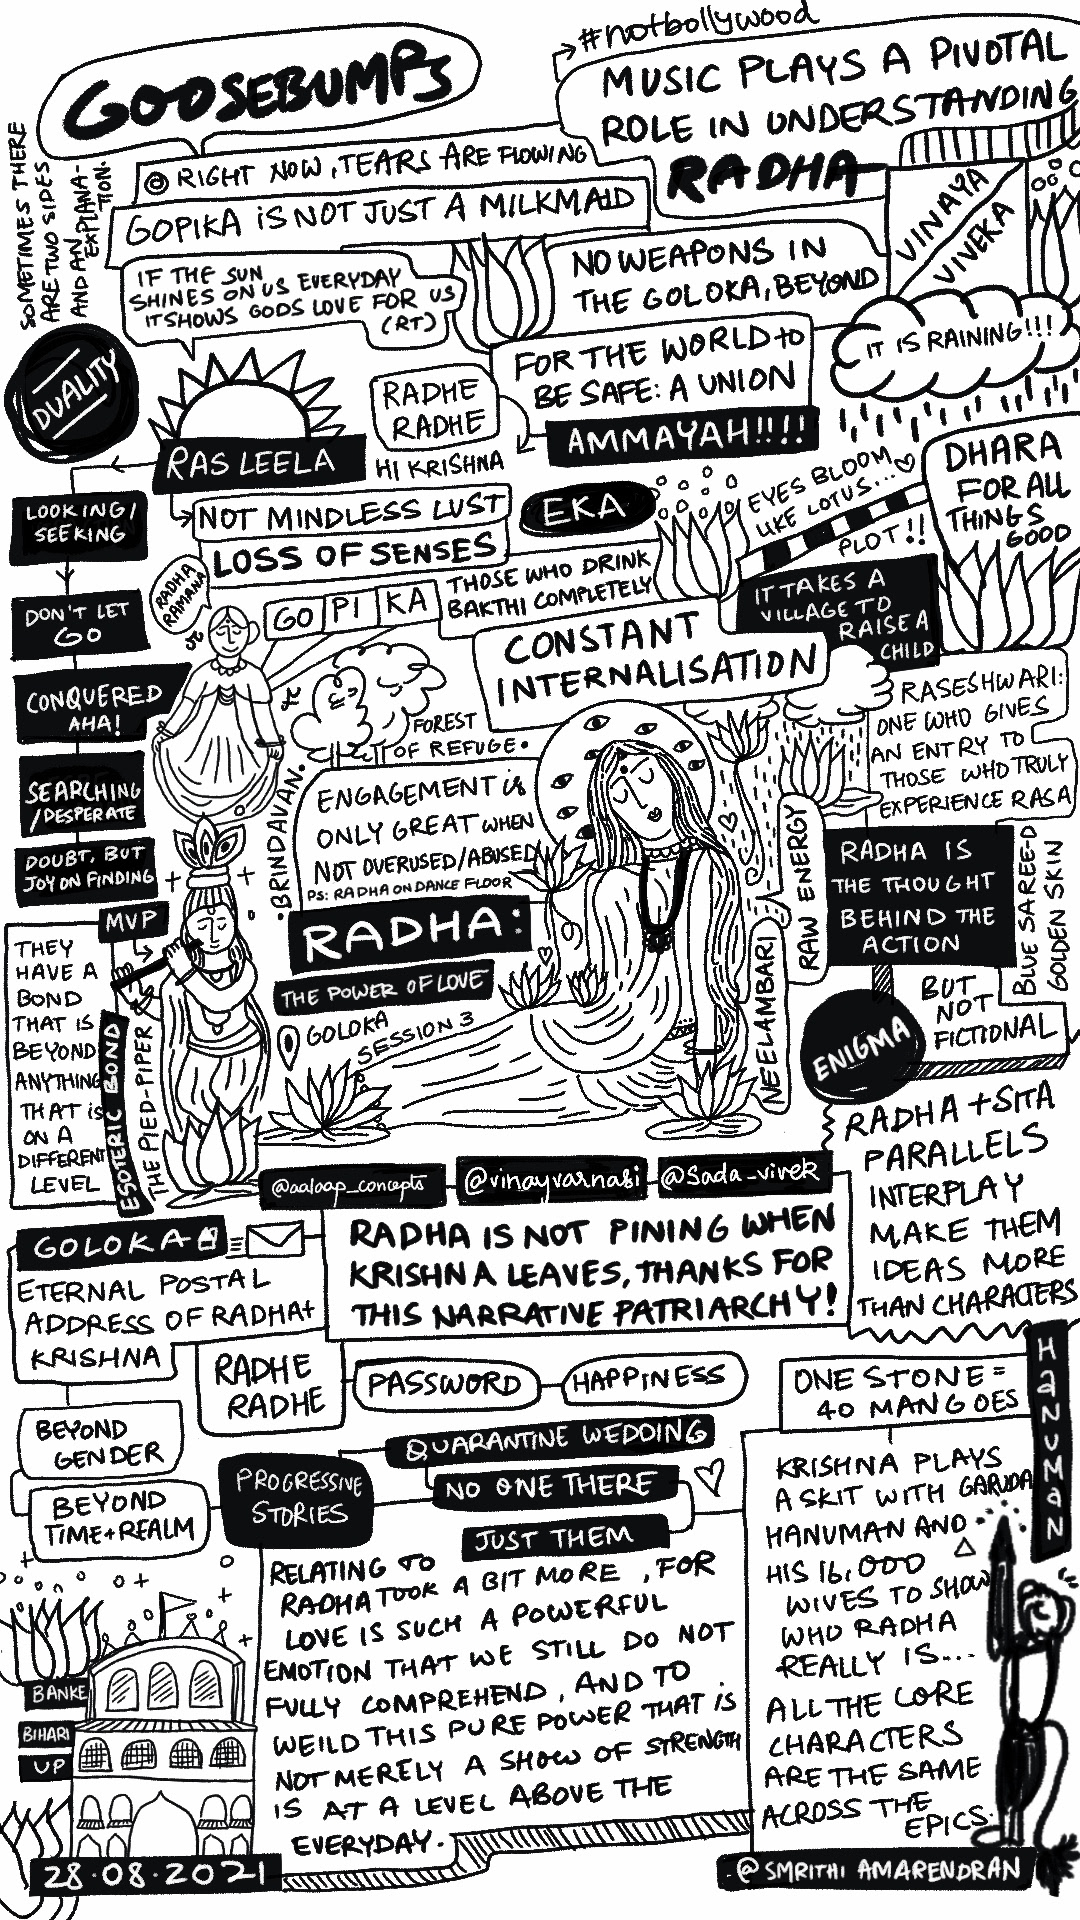 #notbollywood
GOOSEBUMPS
MUSIC PLAYS A PIVOTAL
ROLE IN UNDERSTANDING
RADHA
SOMETIMES THERE
ARE TWO SIDES
AND AN
EXPLANA-
TION.
@ RIGHT NOW, TEARS ARE FLOWING
GOPIKA IS NOT JUST A MILKMAID
VINAYA
VIVEKA
IF THE SUN
SHINES ON US EVERYDAY
IT SHOWS GODS LOVE FOR US
(RT)
NO WEAPONS IN
THE GOLOKA, BEYOND
IT IS RAINING!!!
DUALITY
FOR THE WORLD to
BE SAFE: A UNION
AMMAYAH!!!!
RADHE
RADHE
HI KRISHNA
RAS LEELA
NOT MINDLESS LUST
LOSS OF SENSES
EKA
EYES BLOOM
LIKE LOTUS...
PLOT!!
DHARA
FOR ALL
THINGS
GOOD
LOOKING/
SEEKING
DON'T LET
GO
CONQUERED
AHA!
SEARCHING
/DESPERATE
DOUBT, BUT
JOY ON FINDING
RADHA
RAMANA
GO PI KA
THOSE WHO DRINK
BAKTHI COMPLETELY
IT TAKES A
VILLAGE TO
RAISE A
CHILD
CONSTANT
INTERNALISATION
FOREST
OF REFUGE.
.BRINDAVAN.
RASESHWARI:
ONE WHO GIVES
AN ENTRY TO
THOSE WHO TRULY
EXPERIENCE RASA
ENGAGEMENT is
ONLY GREAT WHEN
NOT OVERUSED/ABUSED
PS: RADHA ON DANCE FLOOR
RADHA:
THE POWER OF LOVE
GOLOKA
SESSION 3
RAW ENERGY
NEELAMBARI
RADHA IS
THE THOUGHT
BEHIND THE
ACTION
BLUE SAREE-D
GOLDEN SKIN
BUT
NOT
FICTIONAL
ENIGMA
MVP
THEY
HAVE A
BOND
THAT IS
BEYOND
ANYTHING
THAT is
ON A
DIFFERENT
LEVEL
ESOTERIC BOND
THE PIED-PIPER
RADHA + SITA
PARALLELS
INTERPLAY
MAKE THEM
IDEAS MORE
THAN CHARACTERS
@aalaap_concepts
@vinayvarnasi
@Sada_vivek
RADHA IS NOT PINING WHEN
KRISHNA LEAVES, THANKS FOR
THIS NARRATIVE PATRIARCHY!
GOLOKA
ETERNAL POSTAL
ADDRESS OF RADHA+
KRISHNA
RADHE
RADHE
PASSWORD
HAPPINESS
BEYOND
GENDER
BEYOND
TIME+REALM
PROGRESSIVE
STORIES
QUARANTINE WEDDING
NO ONE THERE
JUST THEM
ONE STONE =
40 MANGOES
HANUMAN
KRISHNA PLAYS
A SKIT WITH GARUDA
HANUMAN AND
HIS 16,000
WIVES TO SHOW
WHO RADHA
REALLY IS....
ALL THE CORE
CHARACTERS
ARE THE SAME
ACROSS THE
EPICS.
RELATING TO
RADHA TOOK A BIT MORE, FOR
LOVE IS SUCH A POWERFUL
EMOTION THAT WE STILL DO NOT
FULLY COMPREHEND, AND TO
WEILD THIS PURE POWER THAT IS
NOT MERELY A SHOW OF STRENGTH
IS AT A LEVEL ABOVE THE
EVERYDAY.
BANKE
BIHARI
UP
28.08.2021
@SMRITHI AMARENDRAN